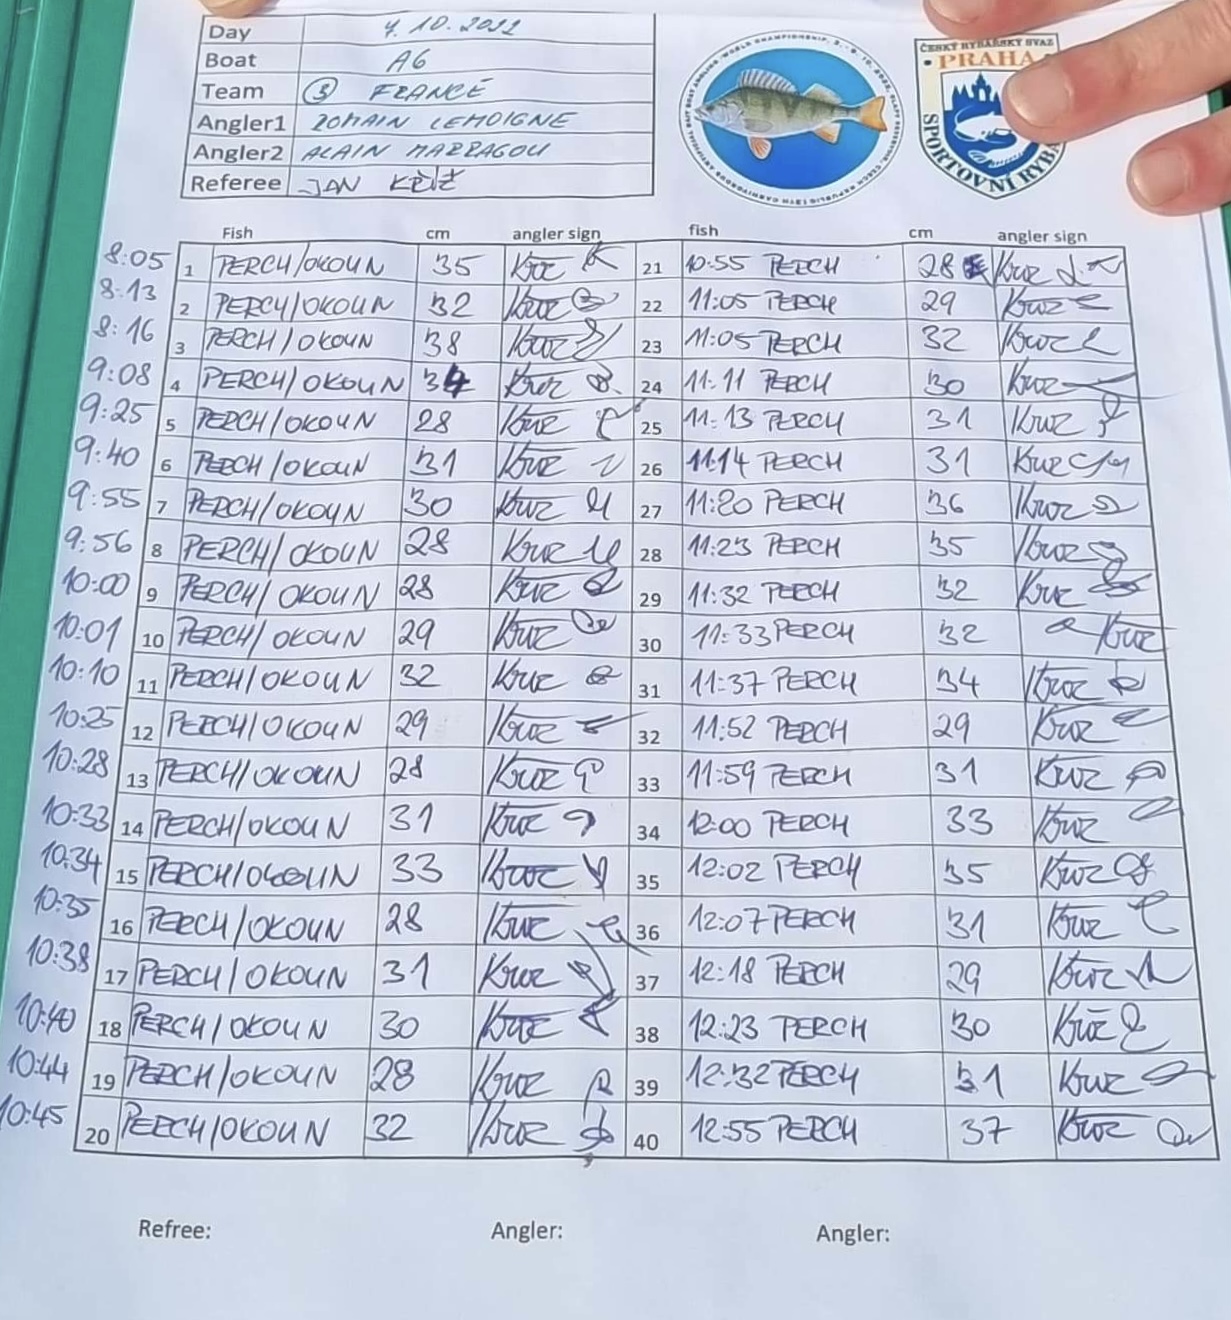 Day 4.10.2022
Boat A6
Team 3 FRANCE
Angler1 ROMAIN LEMOIGNE
Angler2 ALAIN MARRAGOU
Referee JAN KŘÍŽ
ČESKÝ RYBÁŘSKÝ SVAZ
PRAHA
SPORTOVNÍ RYBA
Fish cm angler sign fish cm angler sign
8:05 1 PERCH/OKOUN 35 21 10:55 PERCH 28
8:13 2 PERCH/OKOUN 32 22 11:05 PERCH 29
8:16 3 PERCH/OKOUN 38 23 11:05 PERCH 32
9:08 4 PERCH/OKOUN 34 24 11:11 PERCH 30
9:25 5 PERCH/OKOUN 28 25 11:13 PERCH 31
9:40 6 PERCH/OKOUN 31 26 11:14 PERCH 31
9:55 7 PERCH/OKOUN 30 27 11:20 PERCH 36
9:56 8 PERCH/OKOUN 28 28 11:23 PERCH 35
10:00 9 PERCH/OKOUN 28 29 11:32 PERCH 32
10:01 10 PERCH/OKOUN 29 30 11:33 PERCH 32
10:10 11 PERCH/OKOUN 32 31 11:37 PERCH 34
10:25 12 PERCH/OKOUN 29 32 11:52 PERCH 29
10:28 13 PERCH/OKOUN 28 33 11:59 PERCH 31
10:33 14 PERCH/OKOUN 31 34 12:00 PERCH 33
10:34 15 PERCH/OKOUN 33 35 12:02 PERCH 35
10:35 16 PERCH/OKOUN 28 36 12:07 PERCH 31
10:38 17 PERCH/OKOUN 31 37 12:18 PERCH 29
10:40 18 PERCH/OKOUN 30 38 12:23 PERCH 30
10:44 19 PERCH/OKOUN 28 39 12:32 PERCH 31
10:45 20 PERCH/OKOUN 32 40 12:55 PERCH 37
Refree: Angler: Angler: